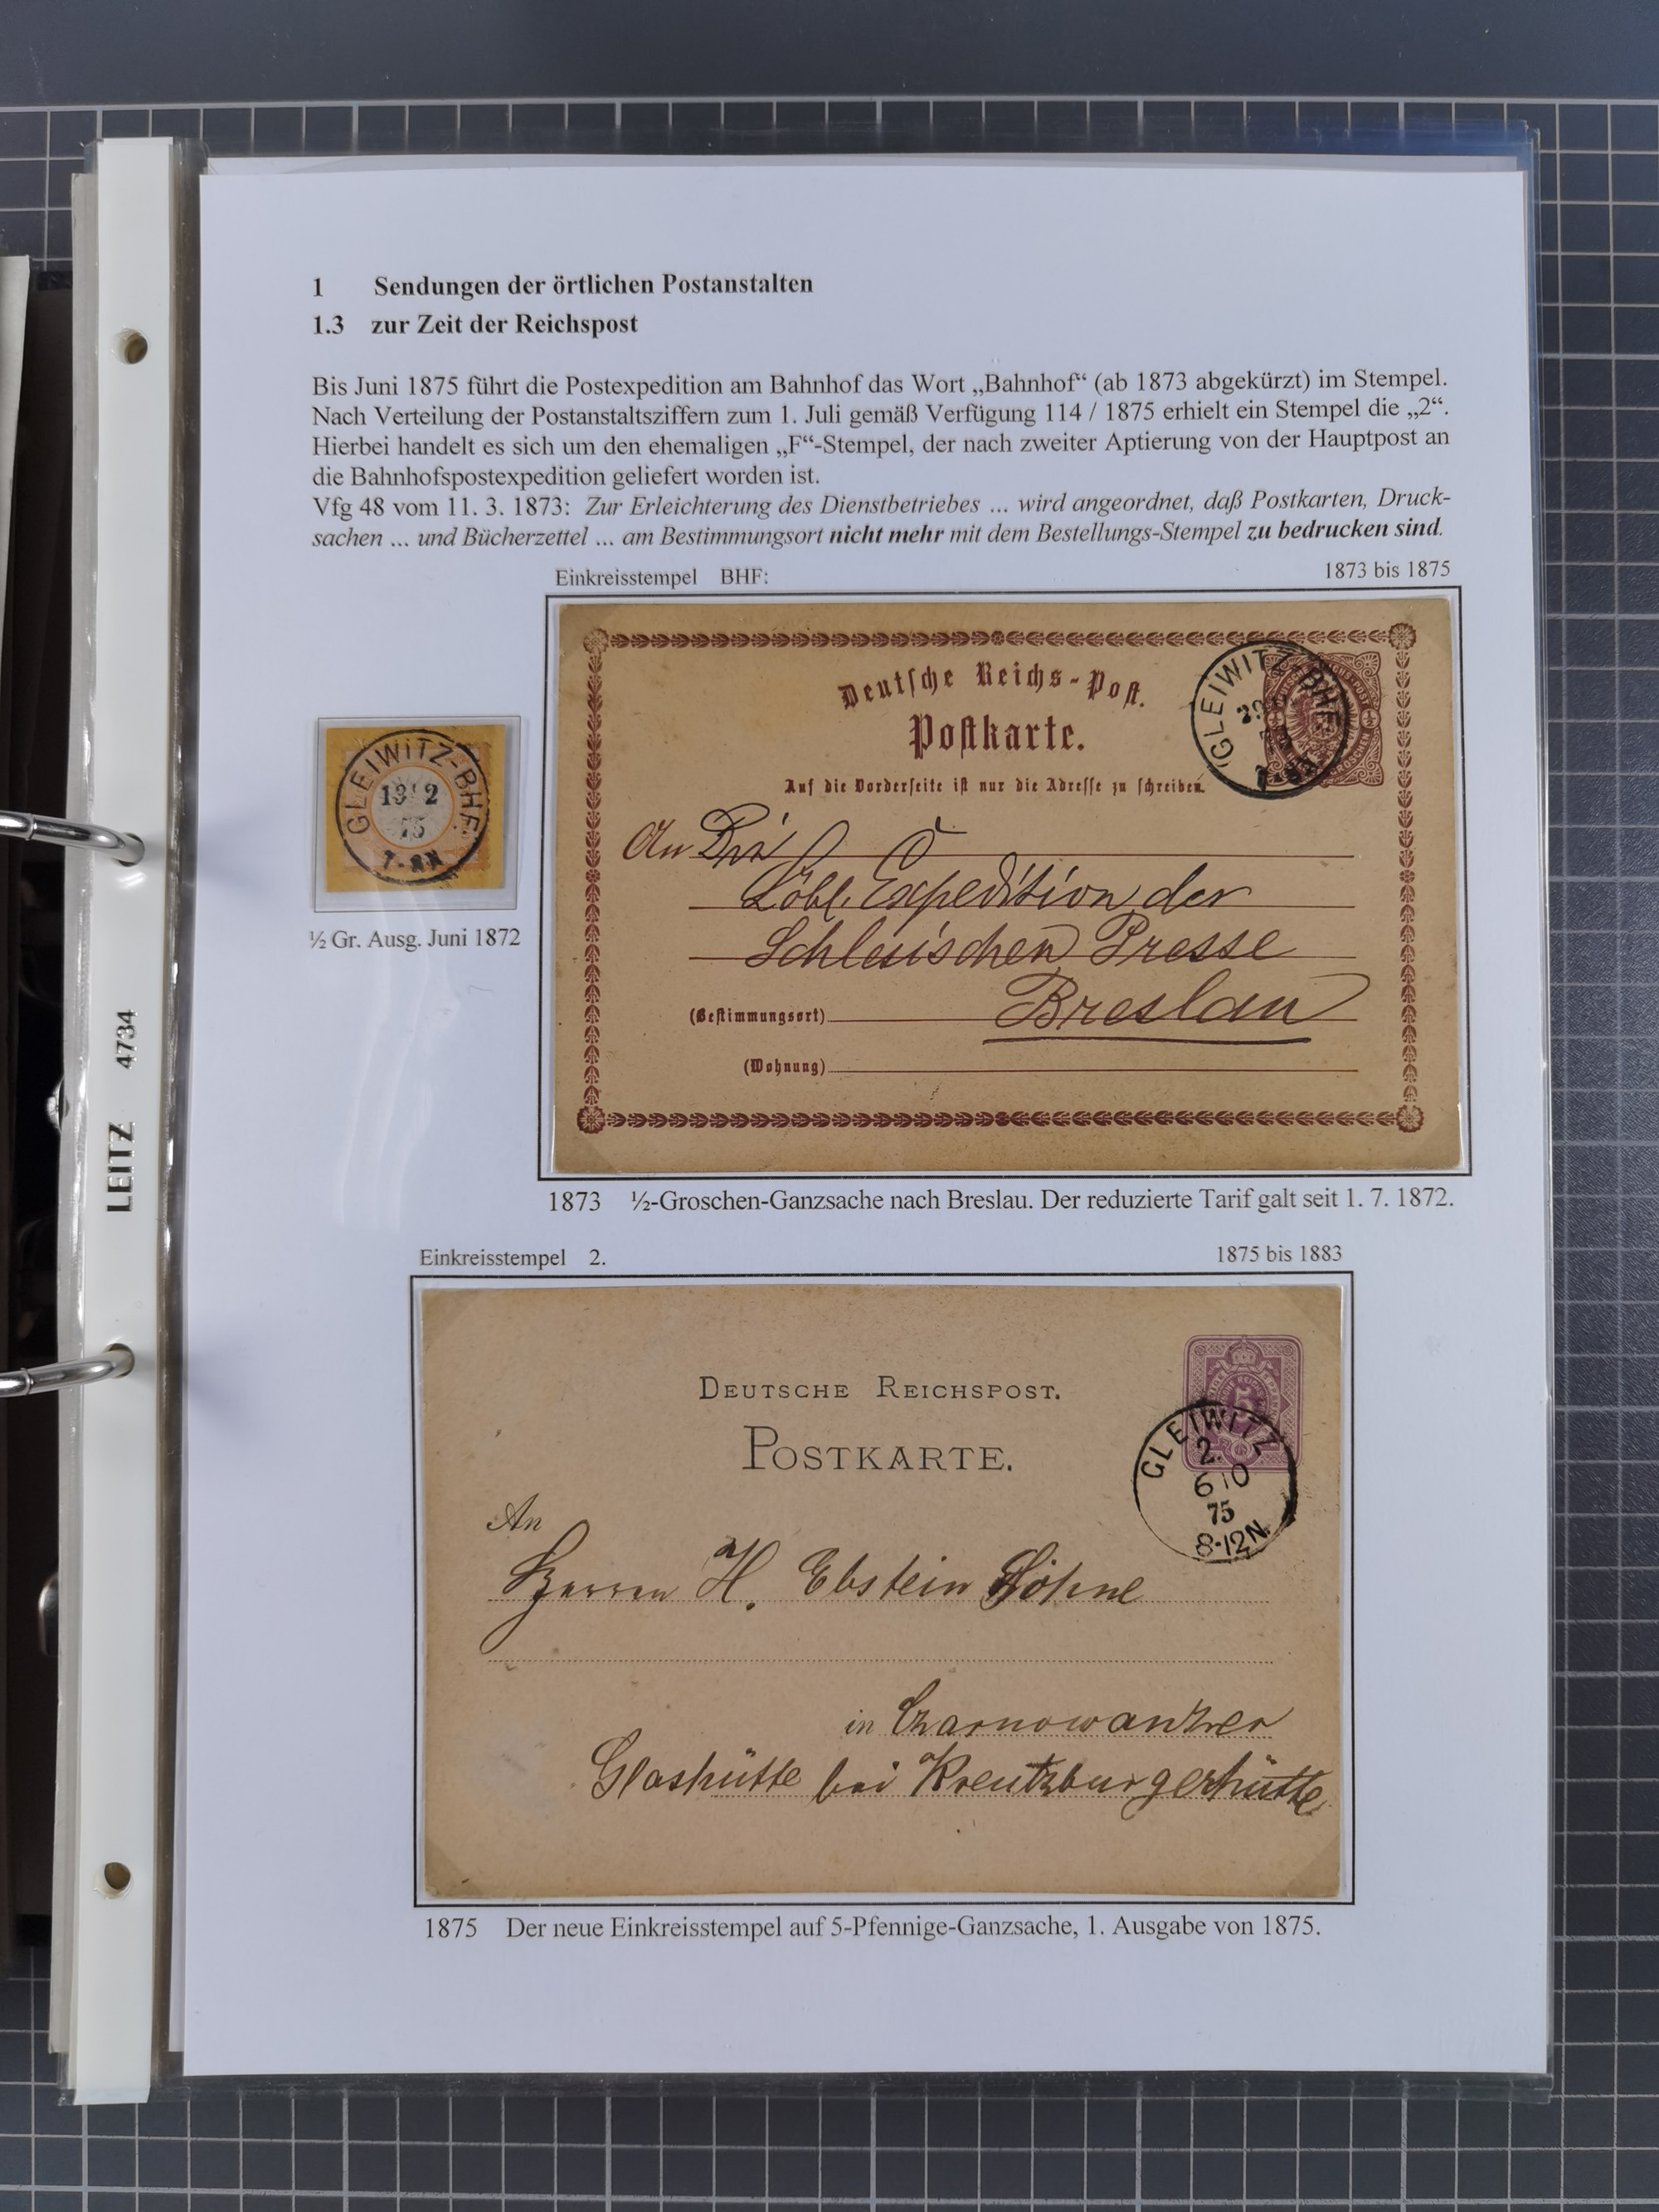 1 Sendungen der örtlichen Postanstalten
1.3 zur Zeit der Reichspost
Bis Juni 1875 führt die Postexpedition am Bahnhof das Wort „Bahnhof“ (ab 1873 abgekürzt) im Stempel.
Nach Verteilung der Postanstaltsziffern zum 1. Juli gemäß Verfügung 114 / 1875 erhielt ein Stempel die „2“.
Hierbei handelt es sich um den ehemaligen „F“-Stempel, der nach zweiter Aptierung von der Hauptpost an
die Bahnhofspostexpedition geliefert worden ist.
Vfg 48 vom 11. 3. 1873: Zur Erleichterung des Dienstbetriebes ... wird angeordnet, daß Postkarten, Druck-
sachen ... und Bücherzettel ... am Bestimmungsort nicht mehr mit dem Bestellungs-Stempel zu bedrucken sind.
Einkreisstempel BHF: 1873 bis 1875
Deutsche Reichs-Post.
Postkarte.
Auf die Vorderseite ist nur die Adresse zu schreiben.
GLEIWITZ-BHF.
An Die
Löbl. Expedition der
Schlesischen Presse
(Bestimmungsort) Breslau
(Wohnung)
GLEIWITZ-BHF.
13 2
75
7-8N
½ Gr. Ausg. Juni 1872
1873 ½-Groschen-Ganzsache nach Breslau. Der reduzierte Tarif galt seit 1. 7. 1872.
Einkreisstempel 2. 1875 bis 1883
DEUTSCHE REICHSPOST.
POSTKARTE.
5
GLEIWITZ
2.
6 10
75
8-12N
An
Herren H. Ebstein Söhne
in Czarnowanzer
Glashütte bei Kreutzburgerhütte
1875 Der neue Einkreisstempel auf 5-Pfennige-Ganzsache, 1. Ausgabe von 1875.
LEITZ 4734